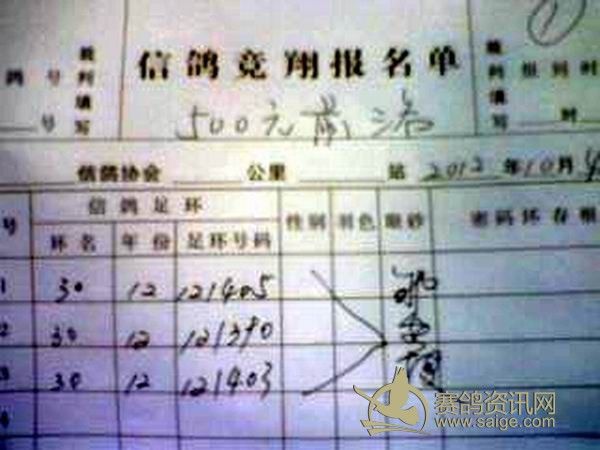 信鸽竞翔报名单
鸽号 裁判填写 裁判填写 报到时
号 时
500元
信鸽协会 公里 站 2012年10月
号 信鸽足环 性别 羽色 眼砂 密码环存根
环名 年份 足环号码
1 30 12 121405
2 30 12 121390
3 30 12 121403
4
赛鸽资讯网
www.saige.com